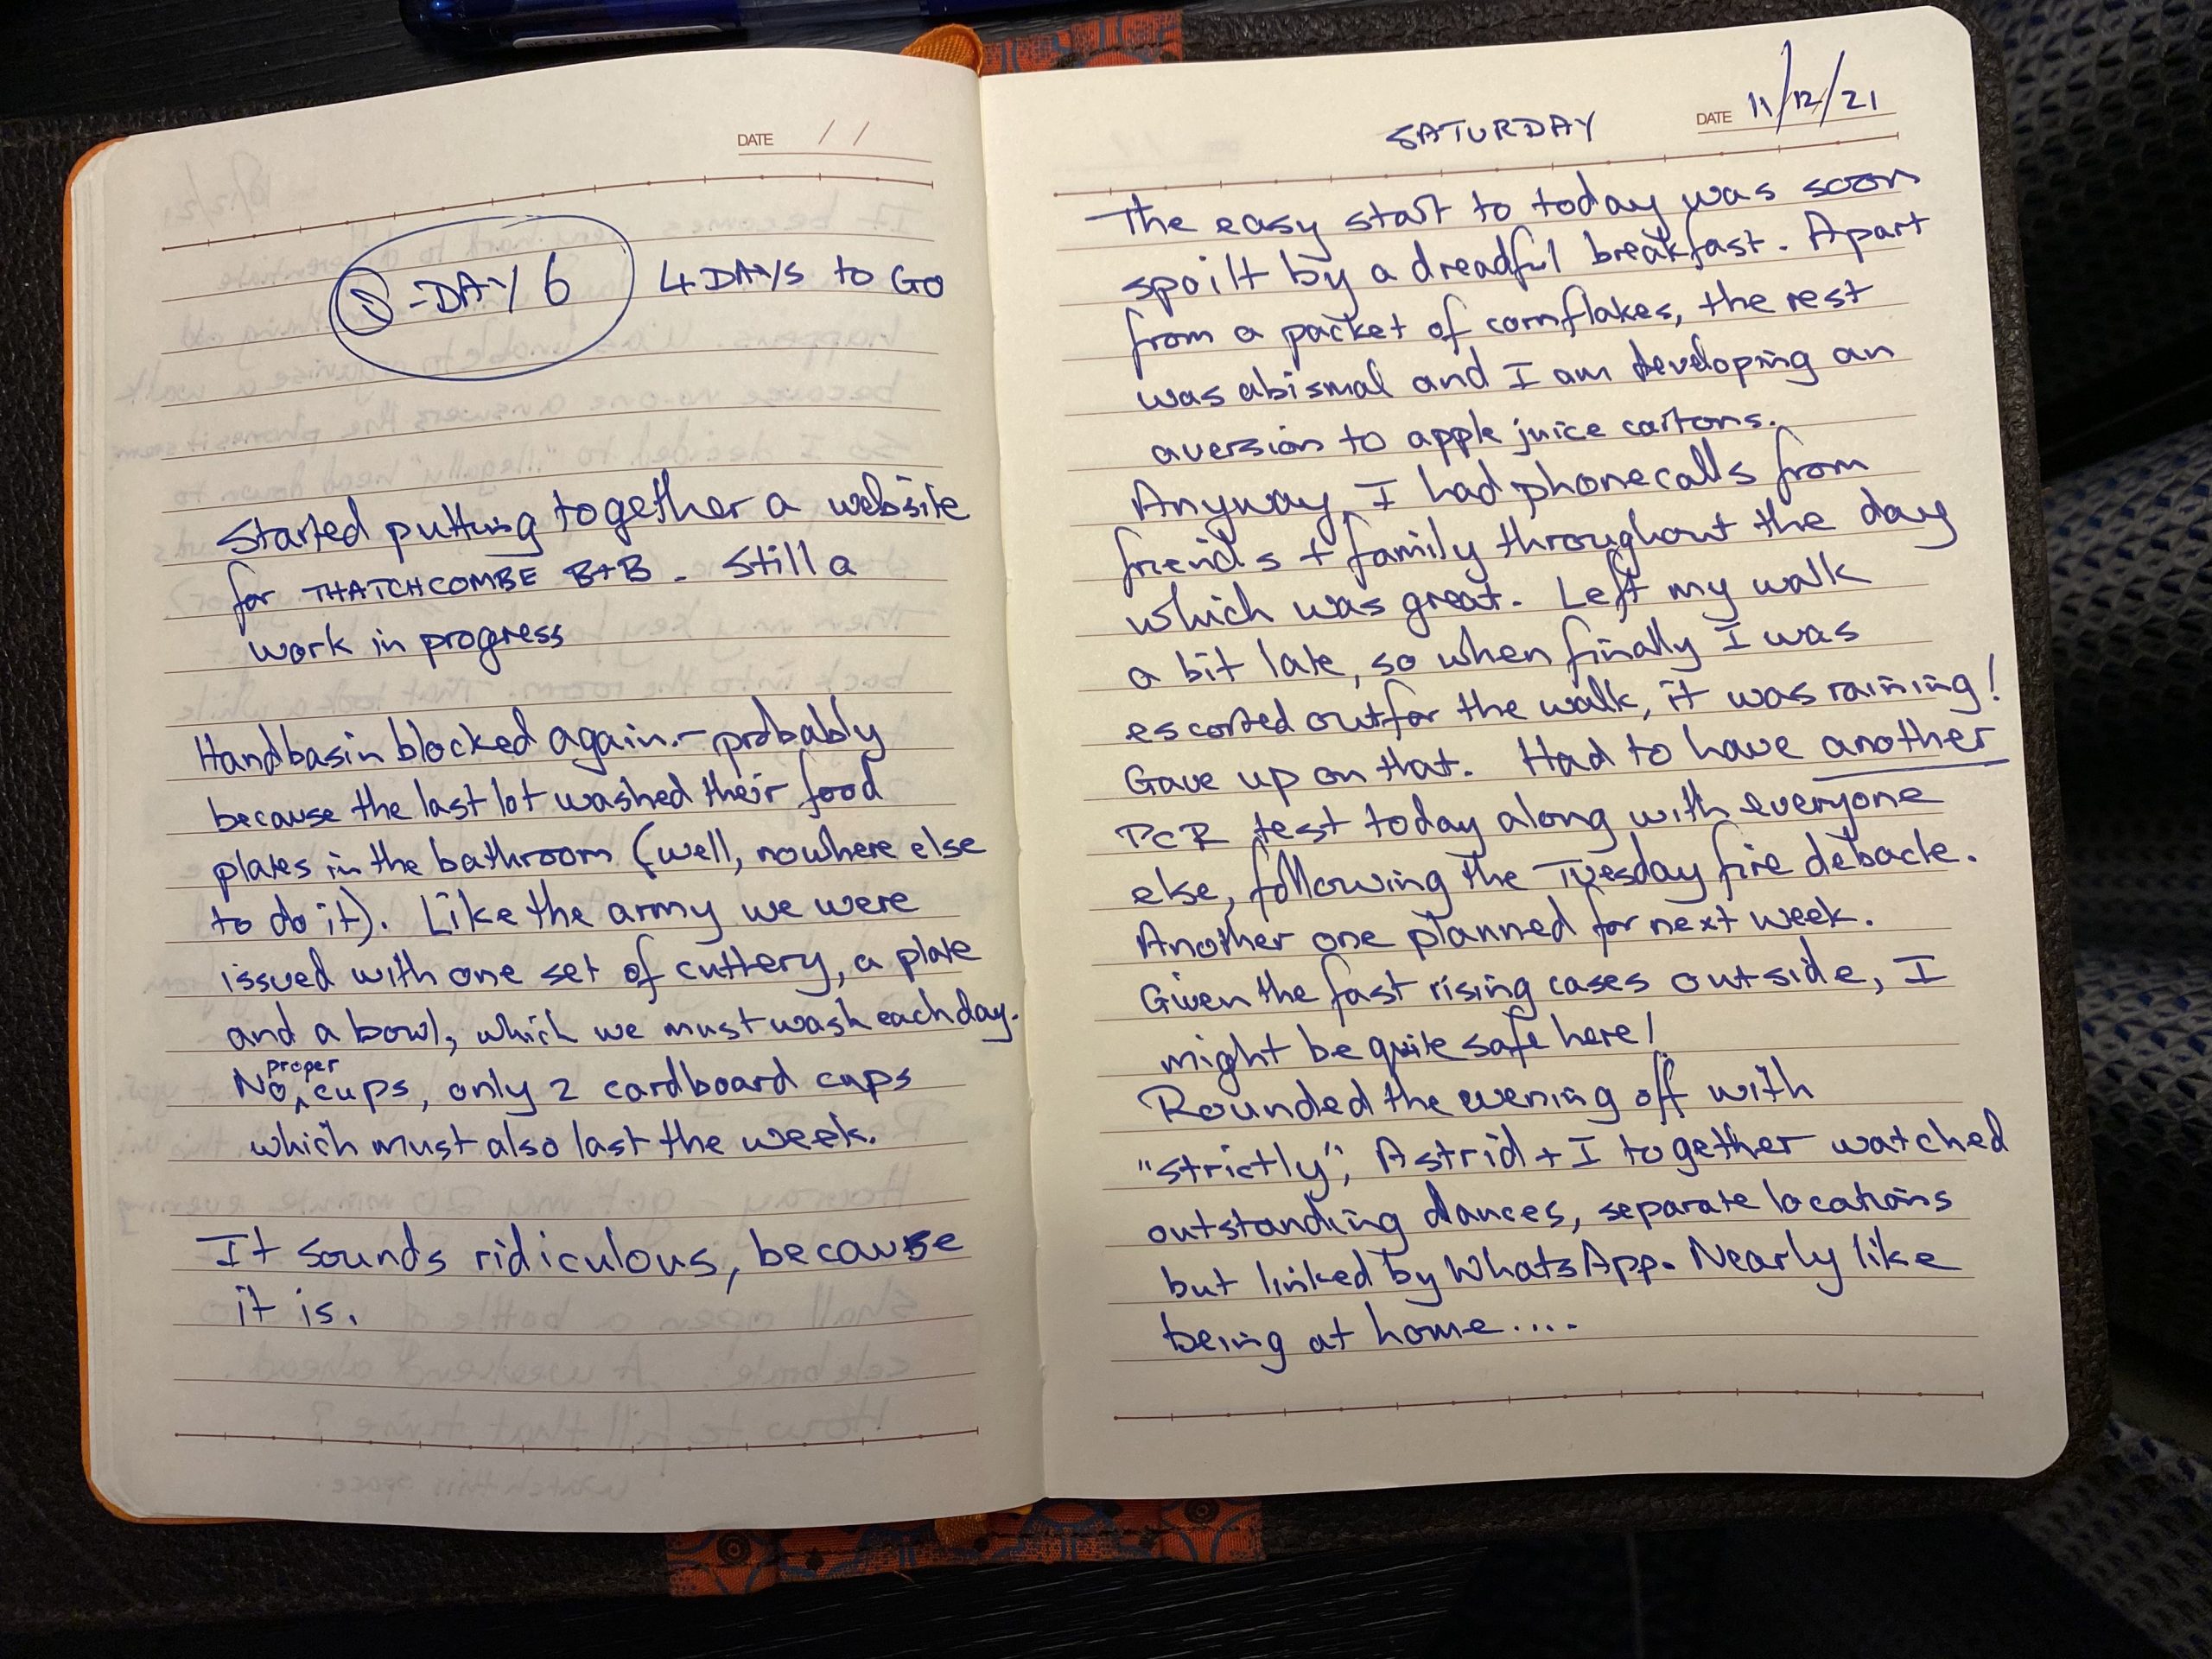 DATE / /
-DAY 6 4 DAYS to GO
Started putting together a website
for THATCHCOMBE B+B - Still a
work in progress
Handbasin blocked again. - probably
because the last lot washed their food
plates in the bathroom (well, nowhere else
to do it). Like the army we were
issued with one set of cuttery, a plate
and a bowl, which we must wash each day.
No proper cups, only 2 cardboard cups
which must also last the week.
It sounds ridiculous, because
it is.
SATURDAY DATE 11/12/21
The easy start to today was soon
spoilt by a dreadful breakfast. Apart
from a packet of cornflakes, the rest
was abismal and I am developing an
aversion to apple juice cartons.
Anyway, I had phonecalls from
friends + family throughout the day
which was great. Left my walk
a bit late, so when finally I was
escorted out for the walk, it was raining!
Gave up on that. Had to have another
PCR test today along with everyone
else, following the Tuesday fire debacle.
Another one planned for next week.
Given the fast rising cases outside, I
might be quite safe here!
Rounded the evening off with
"strictly", Astrid + I together watched
outstanding dances, separate locations
but linked by WhatsApp. Nearly like
being at home....